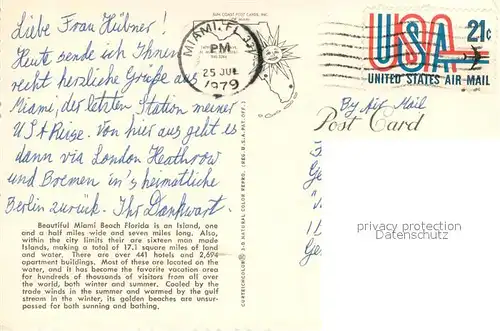 Liebe Frau Hübner!
Heute sende ich Ihnen
recht herzliche Grüße aus
Miami, der letzten Station meiner
USA Reise. Von hier aus geht es
dann via London Heathrow
und Bremen in's heimatliche
Berlin zurück. Ihr Dankwart.
Beautiful Miami Beach Florida is an Island, one
and a half miles wide and seven miles long. Also,
within the city limits their are sixteen man made
Islands, making a total of 17.1 square miles of land
and water. There are over 441 hotels and 2,694
apartment buildings. Most of these are located on the
water, and it has become the favorite vacation area
for hundreds of thousands of visitors from all over
the world, both winter and summer. Cooled by the
trade winds in the summer and warmed by the gulf
stream in the winter, its golden beaches are unsur-
passed for both sunning and bathing.
SUN COAST POST CARDS, INC.
MIAMI, FL
PM
25 JUL
1979
CURTEICHCOLOR® 3-D NATURAL COLOR REPRO. (REG. U.S.A. PAT. OFF.)
USA 21c
UNITED STATES AIR MAIL
By Air Mail
Post Card
privacy protection
Datenschutz